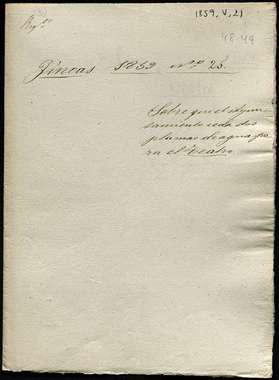 1859, V, 21
48-49
Fincas 1859 nº 25.
Sobre que el Ayun-
tamiento ceda dos
plumas de agua pa-
ra el Teatro